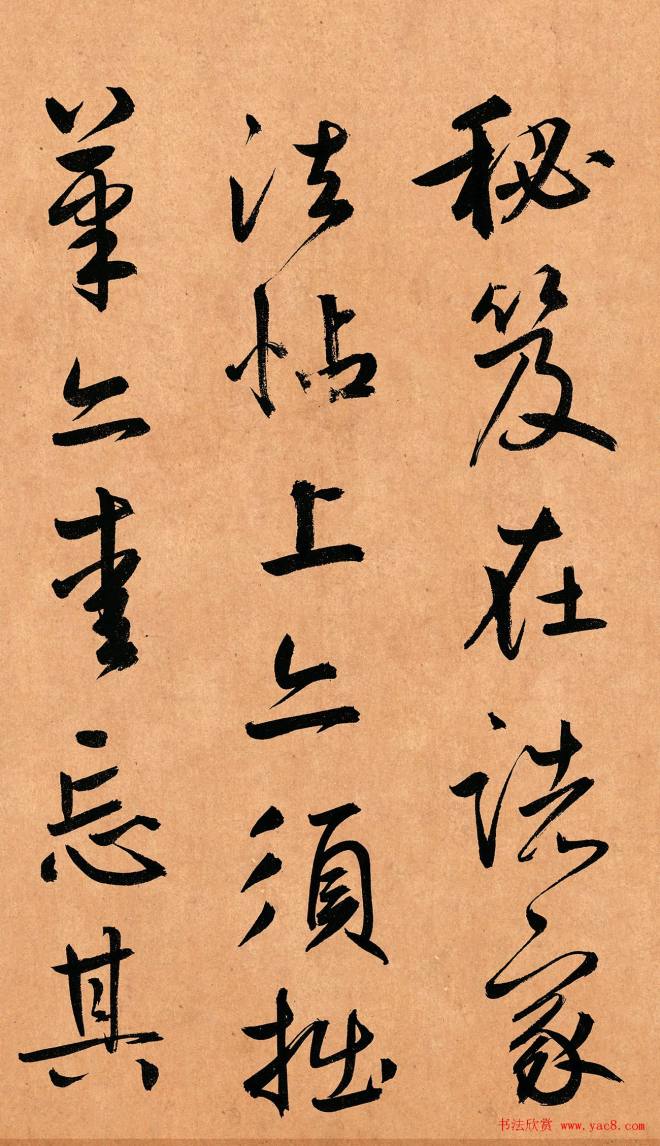 秘笈在諸家
法帖上亠須拙
筆亠書忘其
书法欣赏 www.yac8.com